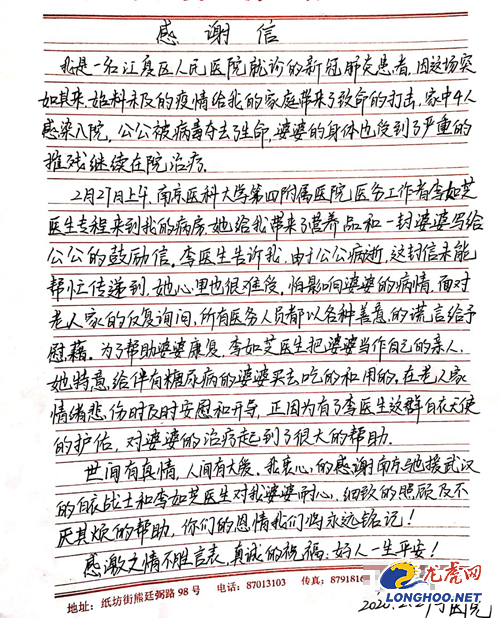 感谢信
我是一名江夏区人民医院就诊的新冠肺炎患者,因这场突
如其来、始料未及的疫情给我的家庭带来了致命的打击,家中4人
感染入院,公公被病毒夺去了生命,婆婆的身体也受到了严重的
摧残继续在院治疗。
2月27日上午,南京医科大学第四附属医院医务工作者李如芝
医生专程来到我的病房,她给我带来了营养品和一封婆婆写给
公公的鼓励信。李医生告诉我,由于公公病逝,这封信未能
帮忙传递到,她心里也很难受,怕影响婆婆的病情,面对
老人家的反复询问,所有医务人员都以各种善意的谎言给予
慰藉。为了帮助婆婆康复,李如芝医生把婆婆当作自己的亲人,
她特意给伴有糖尿病的婆婆买去吃的和用的。在老人家
情绪悲伤时及时安慰和开导,正因为有了李医生这群白衣天使
的护佑,对婆婆的治疗起到了很大的帮助。
世间有真情,人间有大爱,我衷心的感谢南京地援武汉
的白衣战士和李如芝医生对我婆婆耐心,细致的照顾及不
厌其烦的帮助,你们的恩情我们将永远铭记!
感激之情不胜言表,真诚的祝福:好人一生平安!
地址:纸坊街熊廷弼路98号 电话:87013103 传真:8791816
2020.2.29于医院
龙虎网
LONGHOO.NET